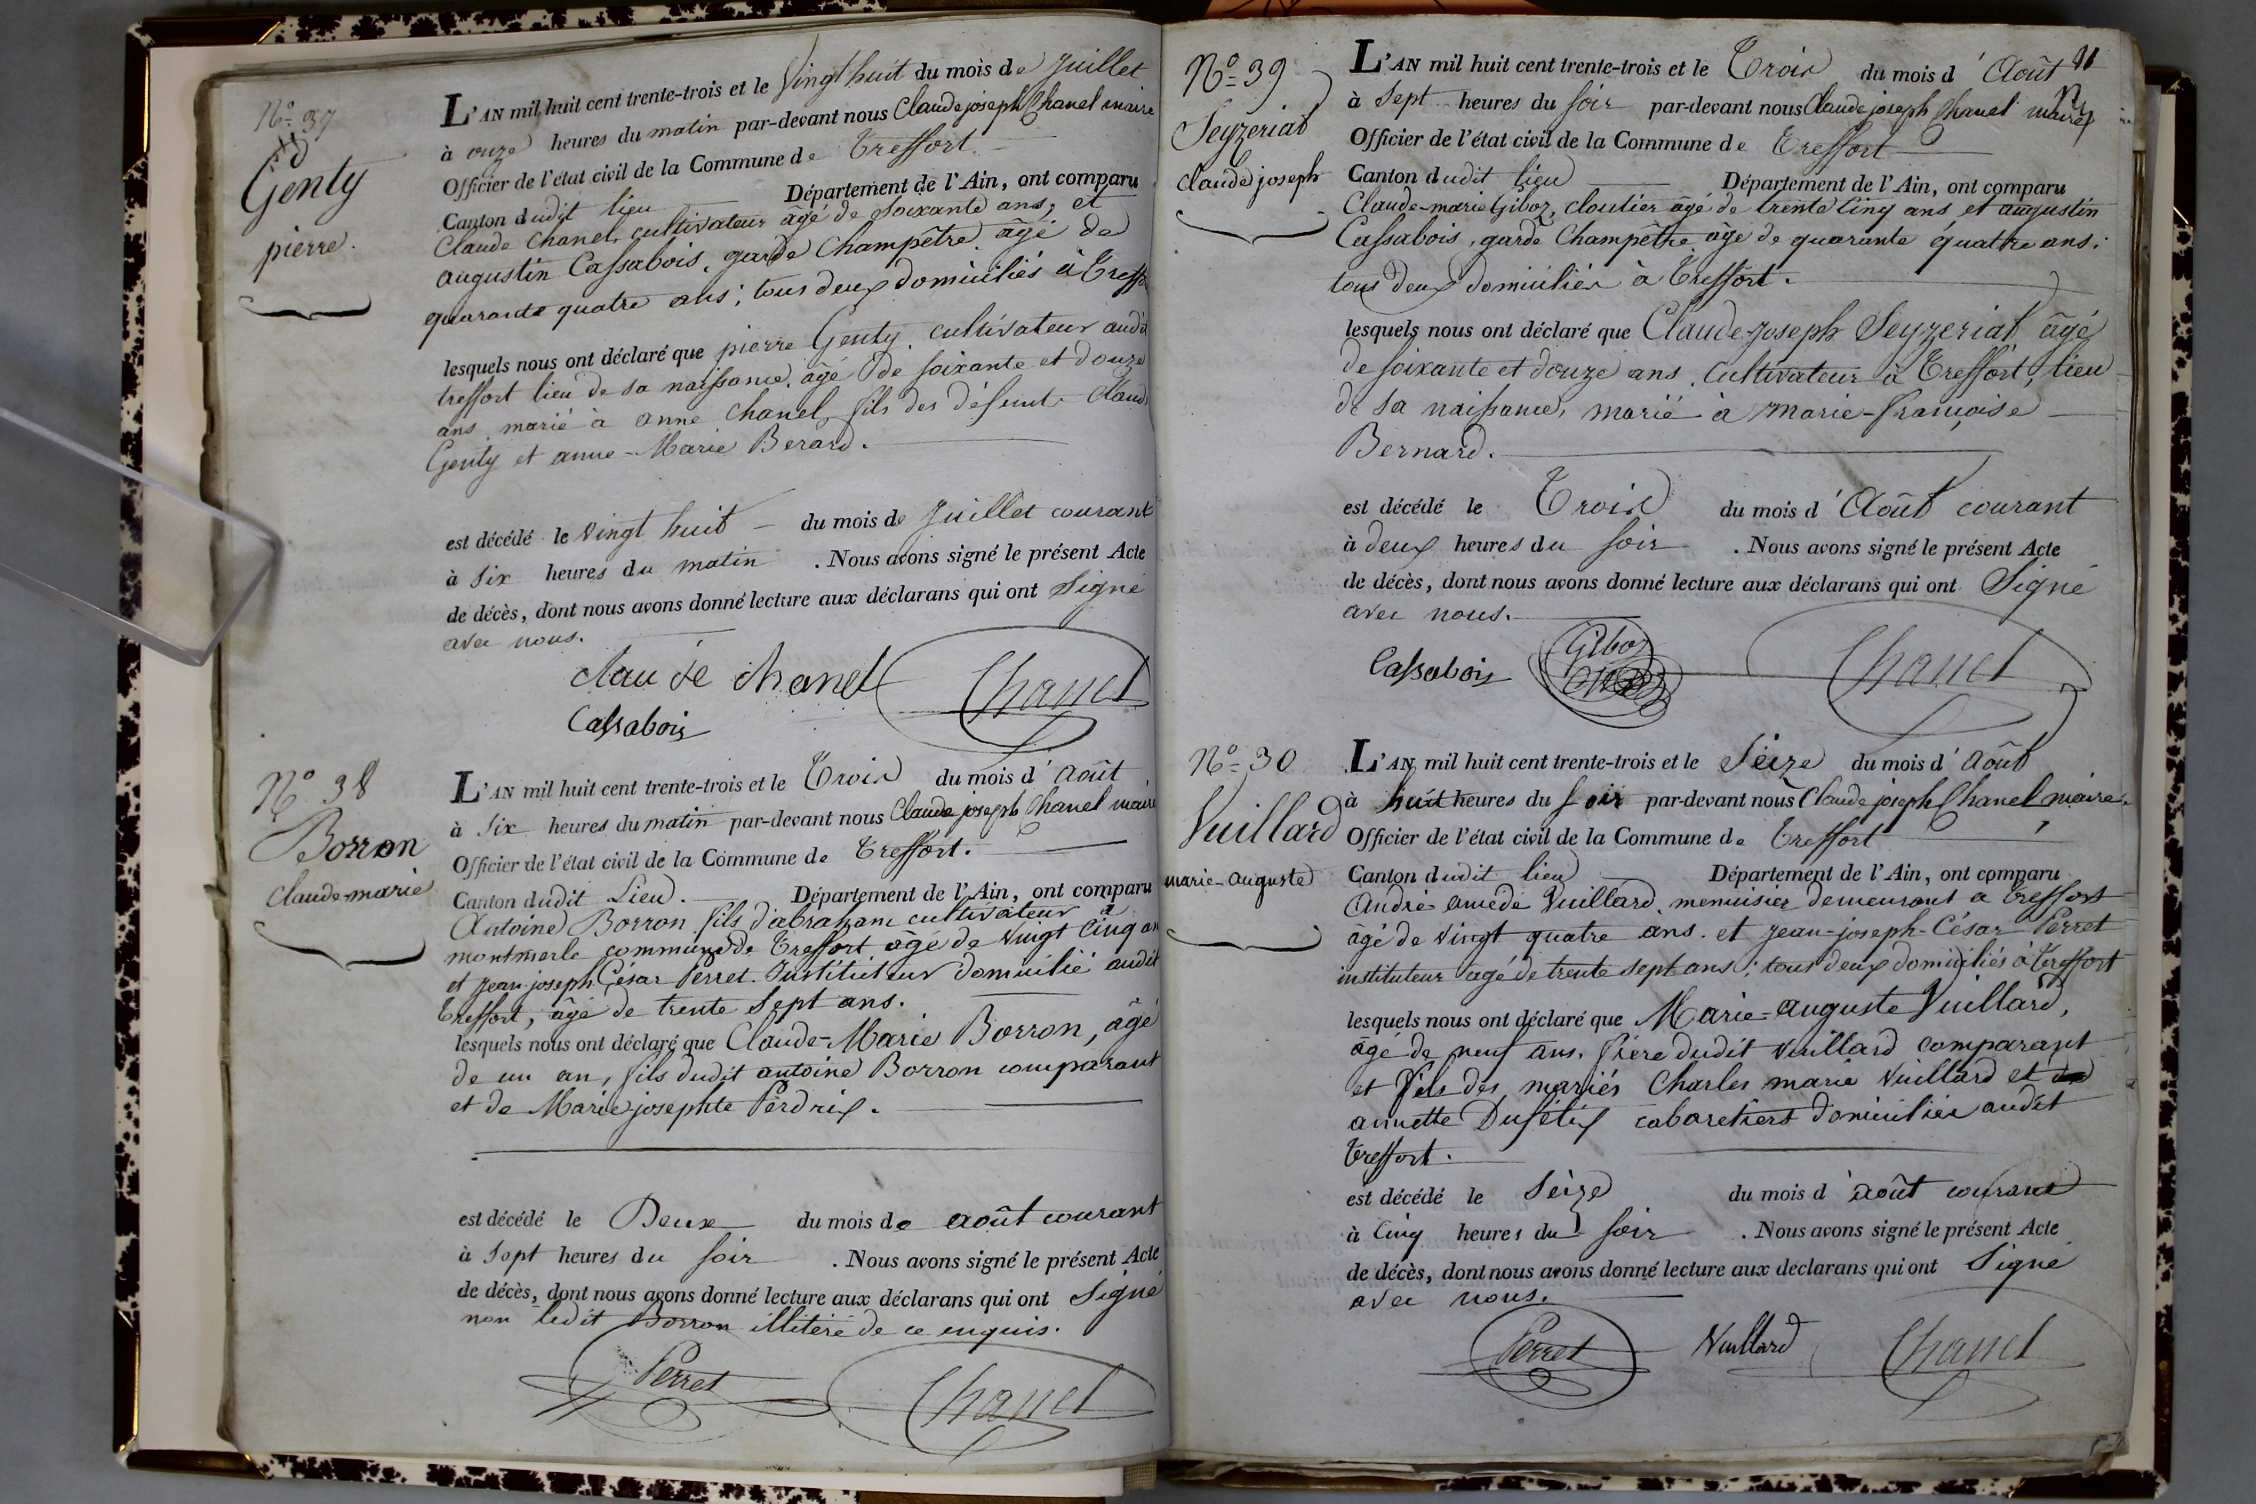 N.º 37
Genty
pierre.
L'AN mil huit cent trente-trois et le Vingt huit du mois de Juillet
à onze heures du matin par-devant nous Claude joseph Chanel maire
Officier de l'état civil de la Commune de Treffort
Canton dudit lieu Département de l'Ain, ont comparu
Claude Chanel, cultivateur âgé de soixante ans, et
augustin Cassabois, garde Champêtre âgé de
quarante quatre ans; tous deux domiciliés à Treffo
lesquels nous ont déclaré que pierre Genty, cultivateur audit
treffort lieu de sa naissance, âgé de soixante et douze
ans, marié à anne Chanel, fils des défunt Claude
Genty et anne-Marie Berard.
est décédé le vingt huit du mois de Juillet courant
à six heures du matin. Nous avons signé le présent Acte
de décès, dont nous avons donné lecture aux déclarans qui ont Signé
avec nous.
claude chanel Chanel
Cassabois
N.º 38
Borron
Claude-marie
L'AN mil huit cent trente-trois et le Trois du mois d'août
à six heures du matin par-devant nous Claude joseph Chanel maire
Officier de l'état civil de la Commune de Treffort.
Canton dudit Lieu. Département de l'Ain, ont comparu
Antoine Borron fils d'abraham cultivateur à
montmerle commune de Treffort âgé de vingt cinq an
et jean-joseph César Perret. Instituteur domicilié audit
Treffort, âgé de trente sept ans.
lesquels nous ont déclaré que Claude-Marie Borron, âgé
de un an, fils dudit antoine Borron comparant
et de Marie josephte Perdrix.
est décédé le Deux du mois de août courant
à Sept heures du soir. Nous avons signé le présent Acte
de décès, dont nous avons donné lecture aux déclarans qui ont Signé
non ledit Borron illitéré de ce enquis.
Perret Chanel
11
N.º 39
Seyzeriat
Claude joseph
L'AN mil huit cent trente-trois et le Trois du mois d'Août
à Sept heures du soir par-devant nous Claude joseph Chanel maire
Officier de l'état civil de la Commune de Treffort
Canton dudit lieu Département de l'Ain, ont comparu
Claude-marie Giboz, cloutier âgé de trente cinq ans et augustin
Cassabois, garde Champêtre âgé de quarante quatre ans;
tous deux domiciliés à Treffort.
lesquels nous ont déclaré que Claude-Joseph Seyzeriat âgé
de soixante et douze ans, Cultivateur à Treffort, lieu
de sa naissance, marié à marie-françoise
Bernard.
est décédé le Trois du mois d'Août courant
à deux heures du soir. Nous avons signé le présent Acte
de décès, dont nous avons donné lecture aux déclarans qui ont Signé
avec nous.
Cassabois Giboz Chanel
N.º 30
Vuillard
marie-auguste
L'AN mil huit cent trente-trois et le Seize du mois d'août
à huit heures du soir par-devant nous Claude joseph Chanel maire
Officier de l'état civil de la Commune de Treffort
Canton dudit lieu Département de l'Ain, ont comparu
André amédé Vuillard, menuisier demeurant à Treffort
âgé de vingt quatre ans. et jean-joseph-César Perret
instituteur âgé de trente sept ans; tous deux domiciliés à Treffort
lesquels nous ont déclaré que Marie-auguste Vuillard,
âgé de neuf ans, frère dudit Vuillard comparant
et fils des mariés Charles marie Vuillard et
annette Dufélix cabaretiers domiciliés audit
Treffort.
est décédé le Seize du mois d'août courant
à Cinq heures du soir. Nous avons signé le présent Acte
de décès, dont nous avons donné lecture aux declarans qui ont Signé
avec nous.
Perret Vuillard Chanel